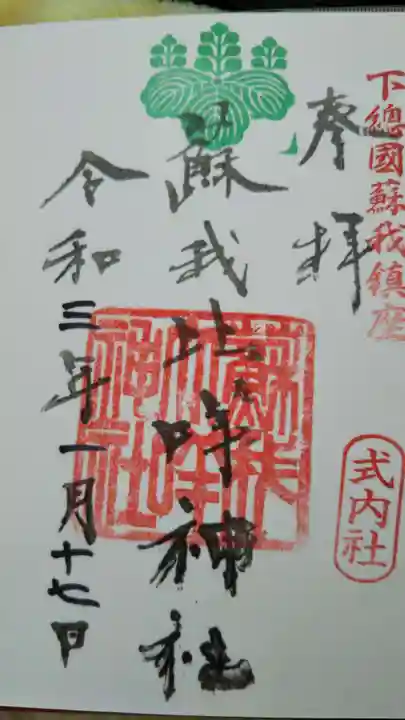 下總國蘇我鎮座
式内社
奉拝
蘇我比咩神社
令和三年一月十七日
蘇我比咩神社